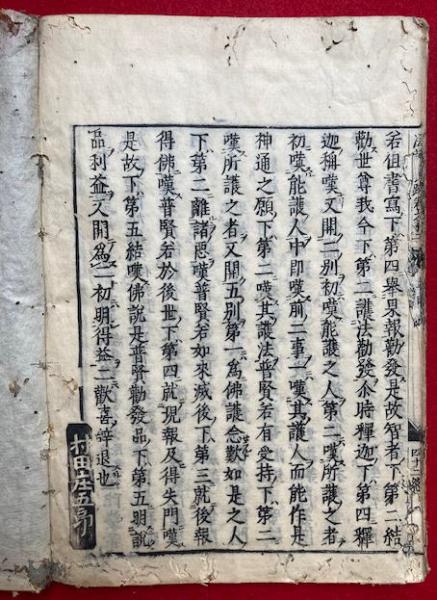 若但書寫下第四舉果報勸發是故智者下第二結
勸世尊我今下第二護法勸發尒時釋迦下第四釋
迦稱嘆又開二別初嘆能護之人第二嘆所護之者
初嘆能護人中即嘆前二事一嘆其護人而能作是
神通之願下第二嘆其護法普賢若有受持下第二
嘆所護之者又開五別第一為佛護念歎如是之人
下第二離諸惡嘆普賢若如來滅後下第三就後報
得佛嘆普賢若於後世下第四就現報及得失門嘆
是故下第五結嘆佛說是普賢勸發品下第五明說
品利益又開為二初明得益二歡喜辞退也
村田庄五郎